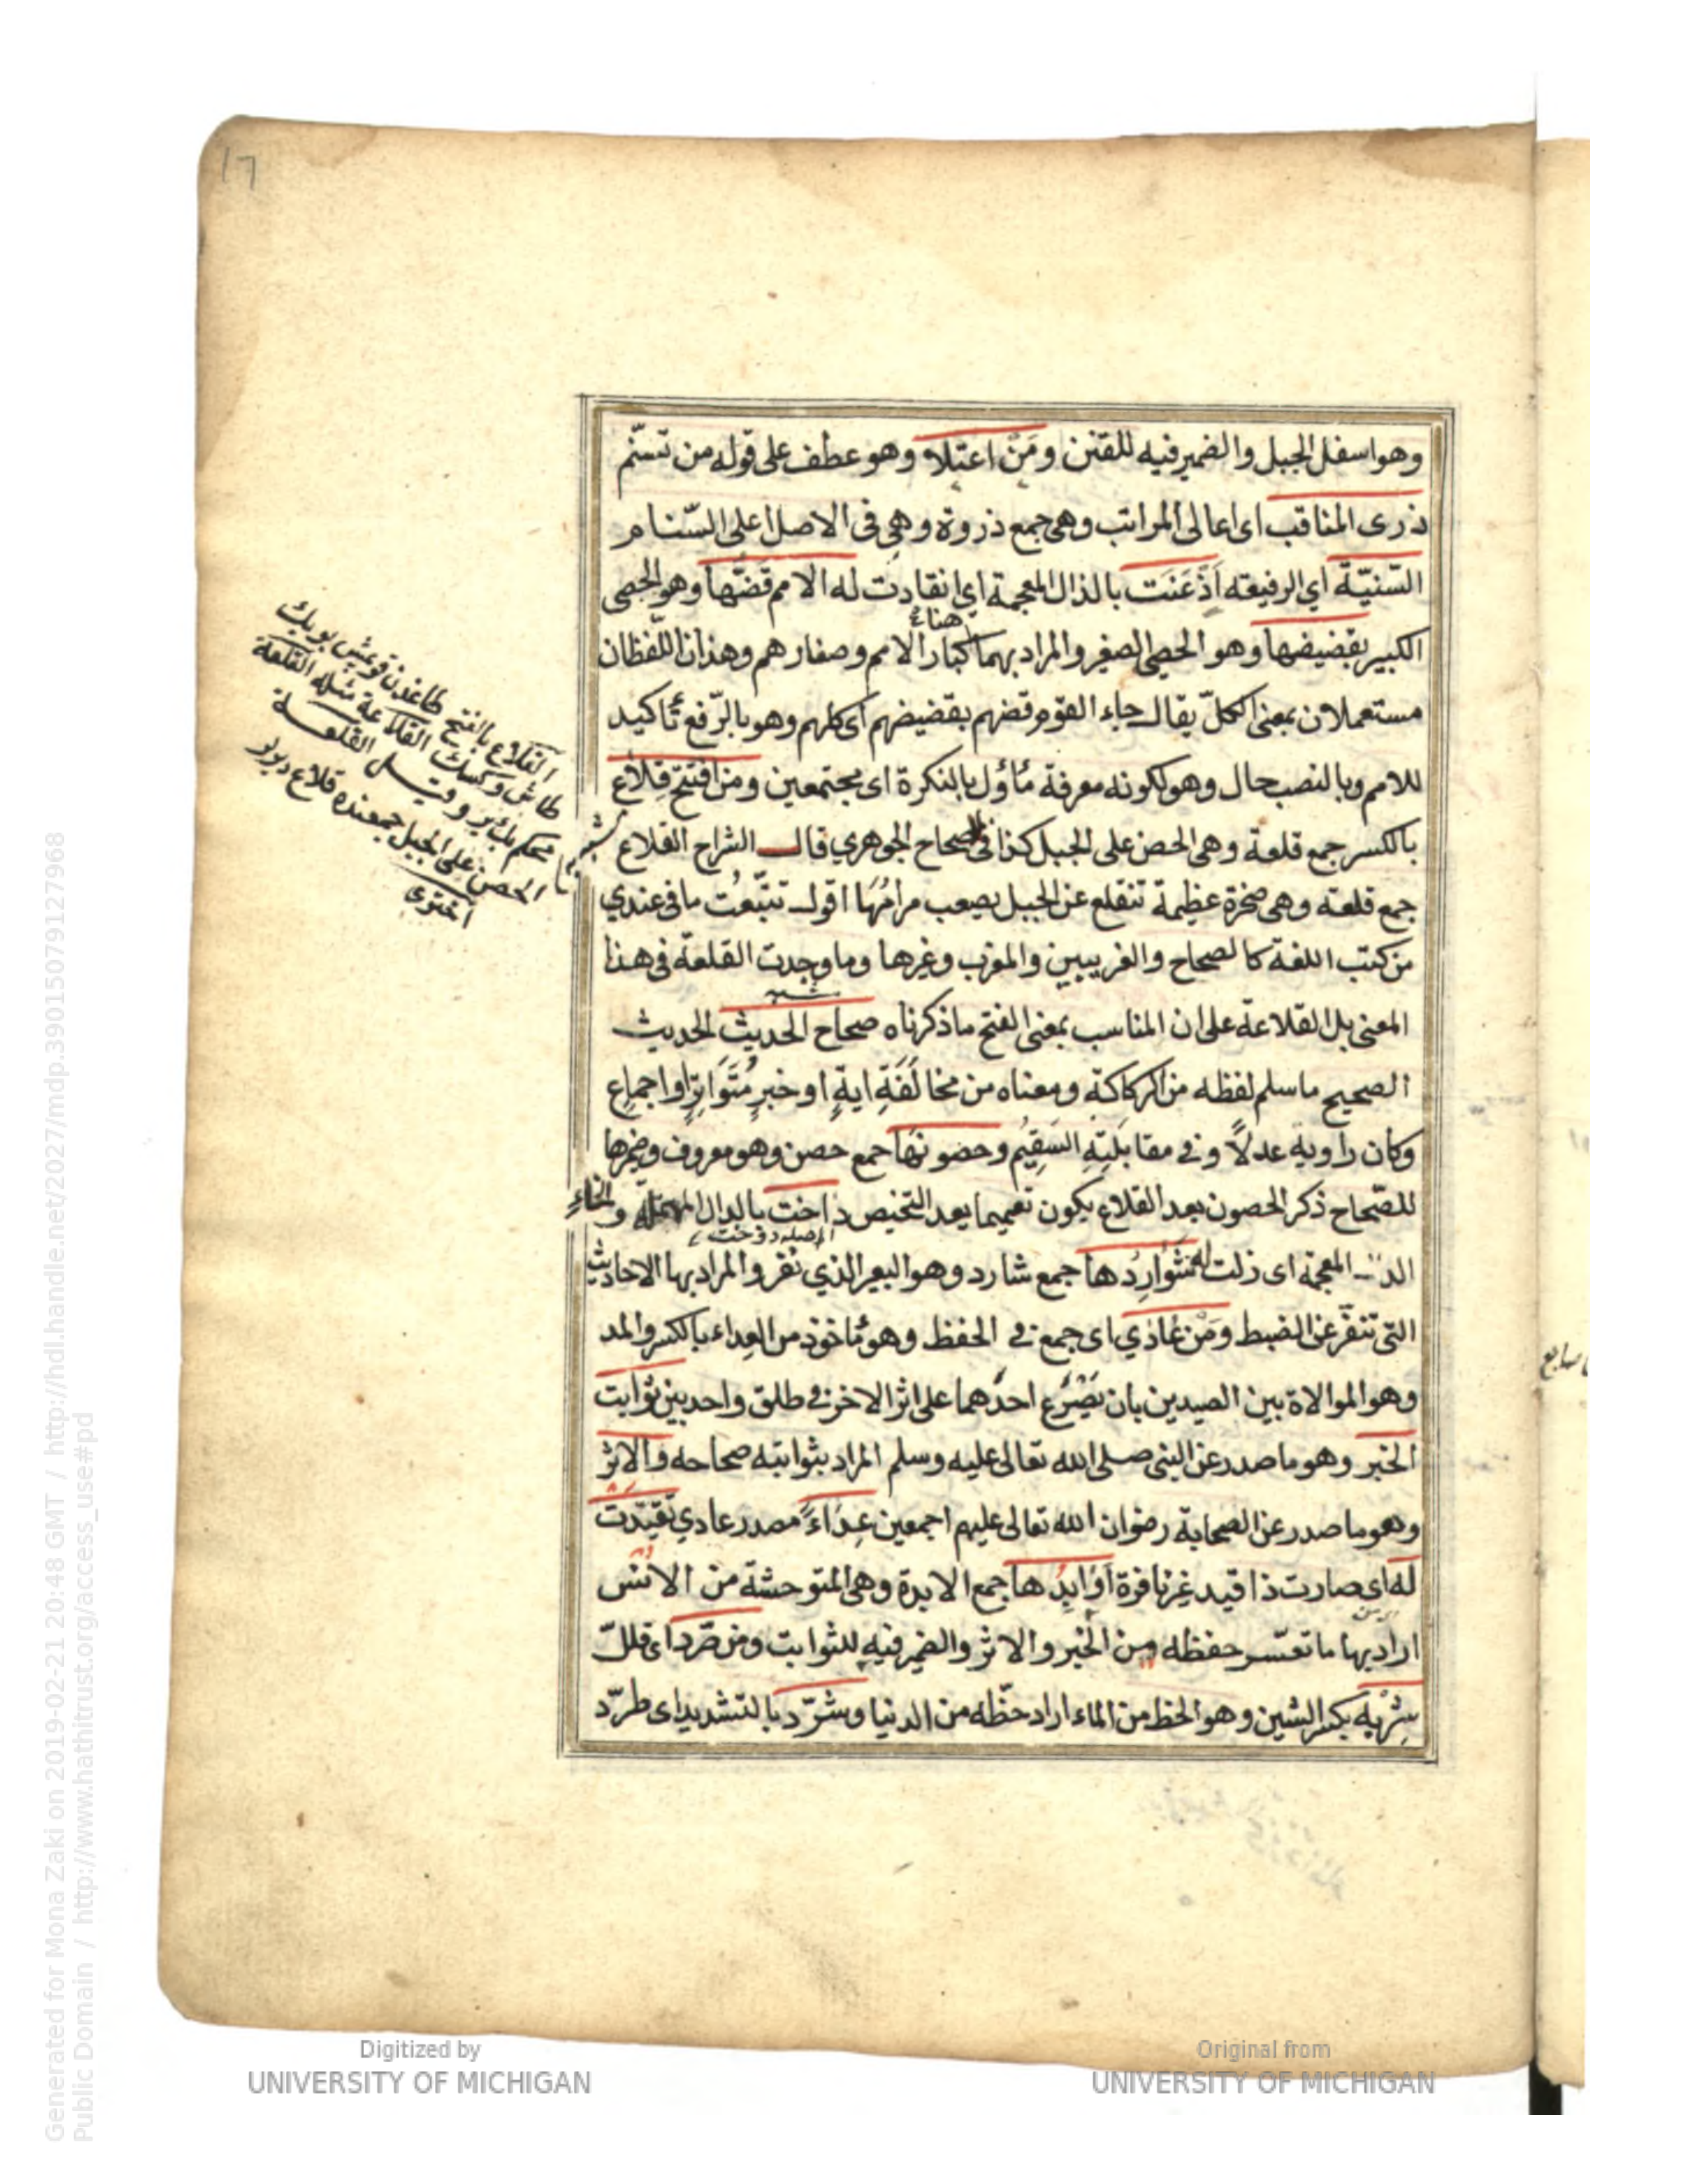 17
وهو اسفل الجبل والضمير فيه للقنن ومن اعتلاه وهو عطف على قوله من تسنّم
ذرى المناقب اى اعالى المراتب وهى جمع ذروة وهى فى الاصل اعلى السّنام
السّنيّة اي الرفيعة اَذْعَنَت بالذال المعجمة اي انقادت له الامم قضّها وهو الحصى
هناء
الكبير بقضيضها وهو الحصى الصغير والمراد بهما كبار الامم وصغارهم وهذان اللّفظان
مستعملان بمعنى الكلّ يقال جاء القوم قضهم بقضيضهم اى كلهم وهو بالرّفع تأكيد
للامم وبالنصب حال وهو لكونه معرفة مأوّل بالنكرة اى مجتمعين ومن افتتح قِلاع
بالكسر جمع قلعة وهى الحصن على الجبل كذا فى الصحاح الجوهري قال الشراح القلاع
جمع قلعة وهى صخرة عظيمة تنقلع عن الجبل يصعب مرامُهَا اقول تتبّعتُ ما فى عندي
من كتب اللغة كالصحاح والغريبين والمغرب وغيرها وما وجدت القلعة فى هذا
المعنى بل القلاعة على ان المناسب بمعنى الفتح ما ذكرناه صحاح الحديث الحديث
الصحيح ما سلم لفظه من الركاكة ومعناه من مخالَفَةِ ايةٍ او خبرٍ مُتَوَاتِرٍ او اجماعٍ
وكان راويه عدلاً وفى مقابَلَتِهِ السَقِيُم وحصونهَا جمع حصن وهو معروف وضميرها
للصّحاح ذكر الحصون بعد القلاع يكون تعميما بعد التخصيص داخت بالدال المهملة والخاء
المعجمة اى ذلت له شَوارِدُها جمع شارد وهو البعير الذي نفر والمراد بها الاحاديث
التى تنفّر عن الضبط ومَن عَادَي اى جمع فى الحفظ وهو مأخوذ من العِداء بالكسر والمد
وهو الموالاة بين الصيدين بان يَصْرَع احدَهما على اثر الاخر فى طلق واحد بين ثوابت
الخبر وهو ما صدر عن النبى صلى الله تعالى عليه وسلم المراد بثوابته صحاحه والاثر
وهو ما صدر عن الصحابة رضوان الله تعالى عليهم اجمعين عِدَاءً مصدر عادي تقيّدت
له اى صارت ذا قيد غير نافرة اَوَابِدُها جمع الابدة وهى المتوحشة من الانس
اراد بها ما تعسّر حفظه من الخبر والاثر والضمير فيه للثوابت ومن صَرّد اى قلّل
شِرْبه بكسر الشين وهو الحظ من الماء اراد حظّه من الدنيا وشرّد بالتشديد اى طرّد
القلاع بالفتح
القلاعة مثله القلعة
وقيل القلعة
الحصن على الجبل جمعنده قلاع ديرلر
اختري
Digitized by
UNIVERSITY OF MICHIGAN
Original from
UNIVERSITY OF MICHIGAN
Generated for Mona Zaki on 2019-02-21 20:48 GMT / http://hdl.handle.net/2027/mdp.39015079127968
Public Domain / http://www.hathitrust.org/access_use#pd